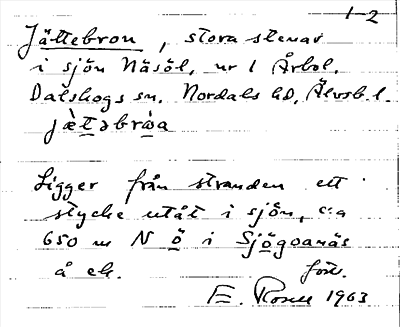 1-2
Jättebron, stora stenar
i sjön Näsöl, nr 1 Årbol,
Dalskogs sn. Nordals hd, Älvsb. l.
jæ̀təbrωa
Ligger från stranden ett
stycke utåt i sjön, c:a
650 m N ö i Sjögoanäs
å ek. förr.
E. Rosell 1963